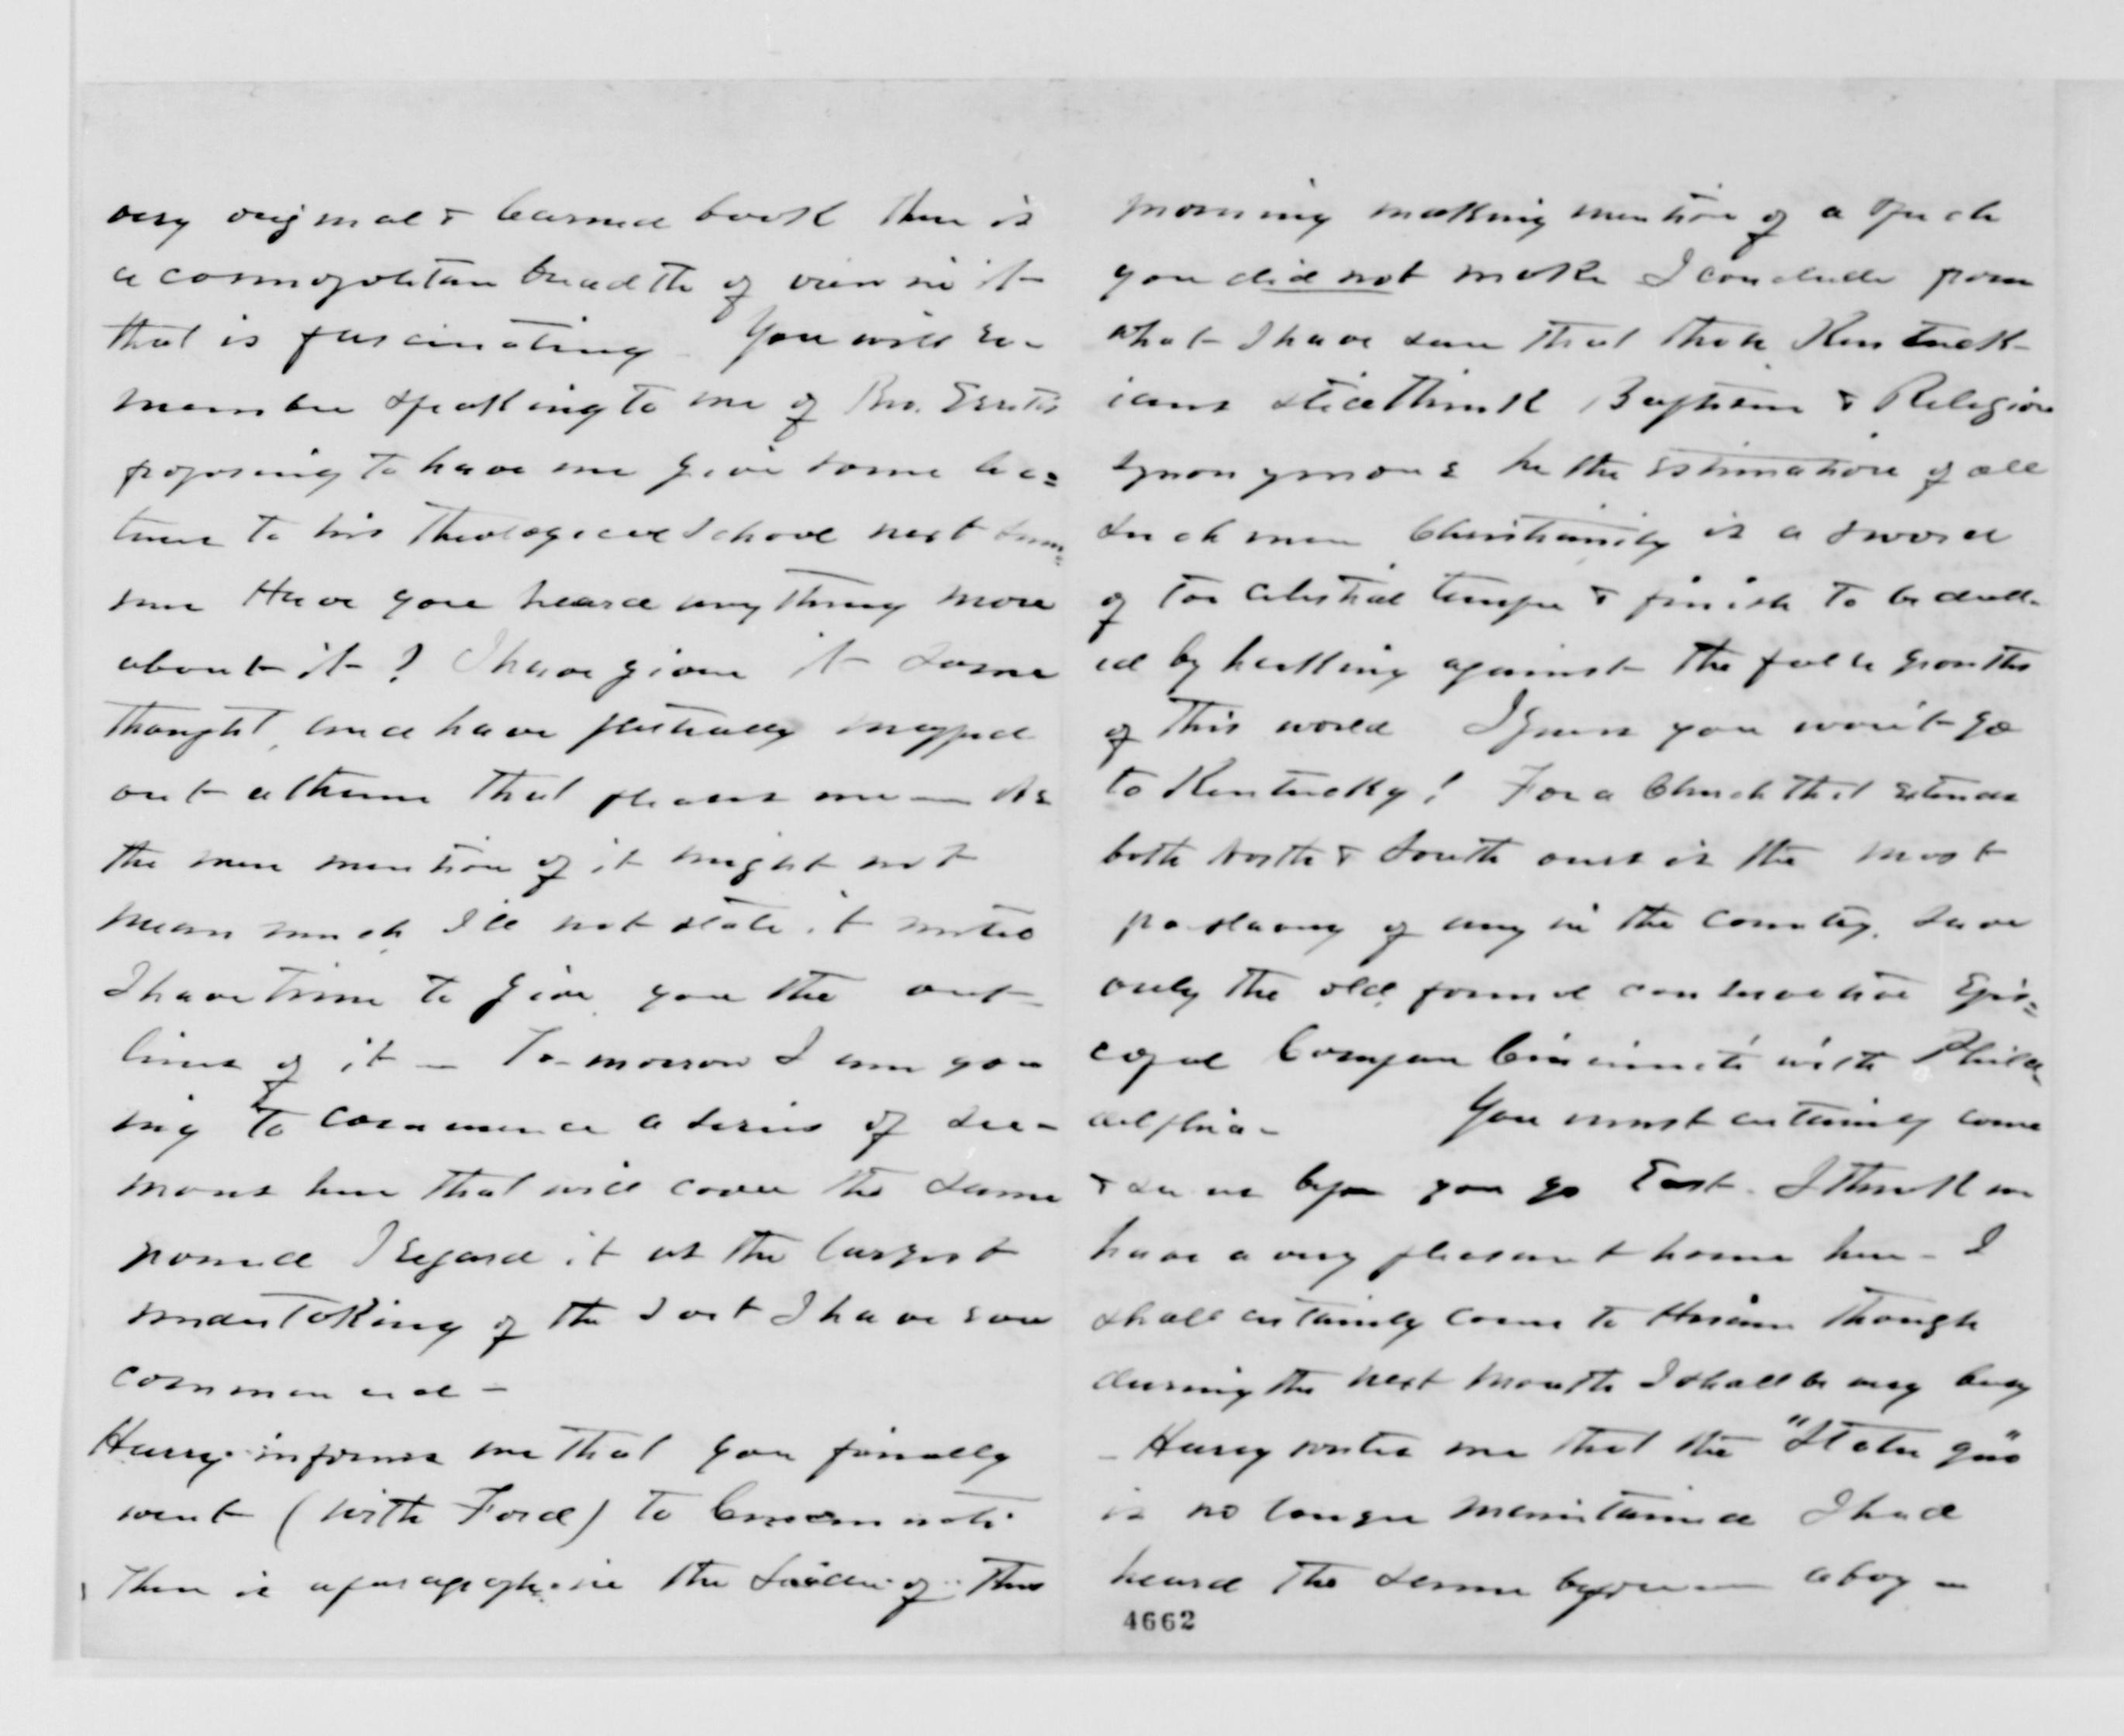 very original & learned book there is
a cosmopolitan breadth of view in it
that is fascinating You will re-
member speaking to me of Bro. Errett's
proposing to have me give some lec=
tures to his Theological School next sum=
mer Have you heard anything more
about it? I have given it some
thought, and have partially mapped
out a theme that pleases me — As
the mere mention of it might not
mean much, I'll not state it until
I have time to give you the out-
lines of it — To-morrow I am go-
ing to commence a series of ser-
mons here that will cover the same
ground I regard it as the largest
undertaking of the sort I have ever
commenced —
Harry informs me that you finally
went (with Ford) to Cincinnati.
There is a paragraph in the Leader of this
morning making mention of a speech
you did not make I conclude from
what I have seen that those Kentuck-
ians still think Baptism & Religion
synonymous In the estimation of all
such men Christianity is a sword
of too celestial temper & finish to be dull-
ed by hacking against the false growths
of this world I guess you won't go
to Kentucky! For a Church that extends
both North & South ours is the most
pro slavery of any in the country, save
only the old formal conservative Epis=
copal Compare Cincinnati with Phila-
delphia — You must certainly come
& see us before you go East. I think we
have a very pleasant home here — I
shall certainly come to Hiram though
during the next month I shall be very busy
— Harry writes me that the "Statu quo"
is no longer maintained I had
heard the same before — a boy —
4662